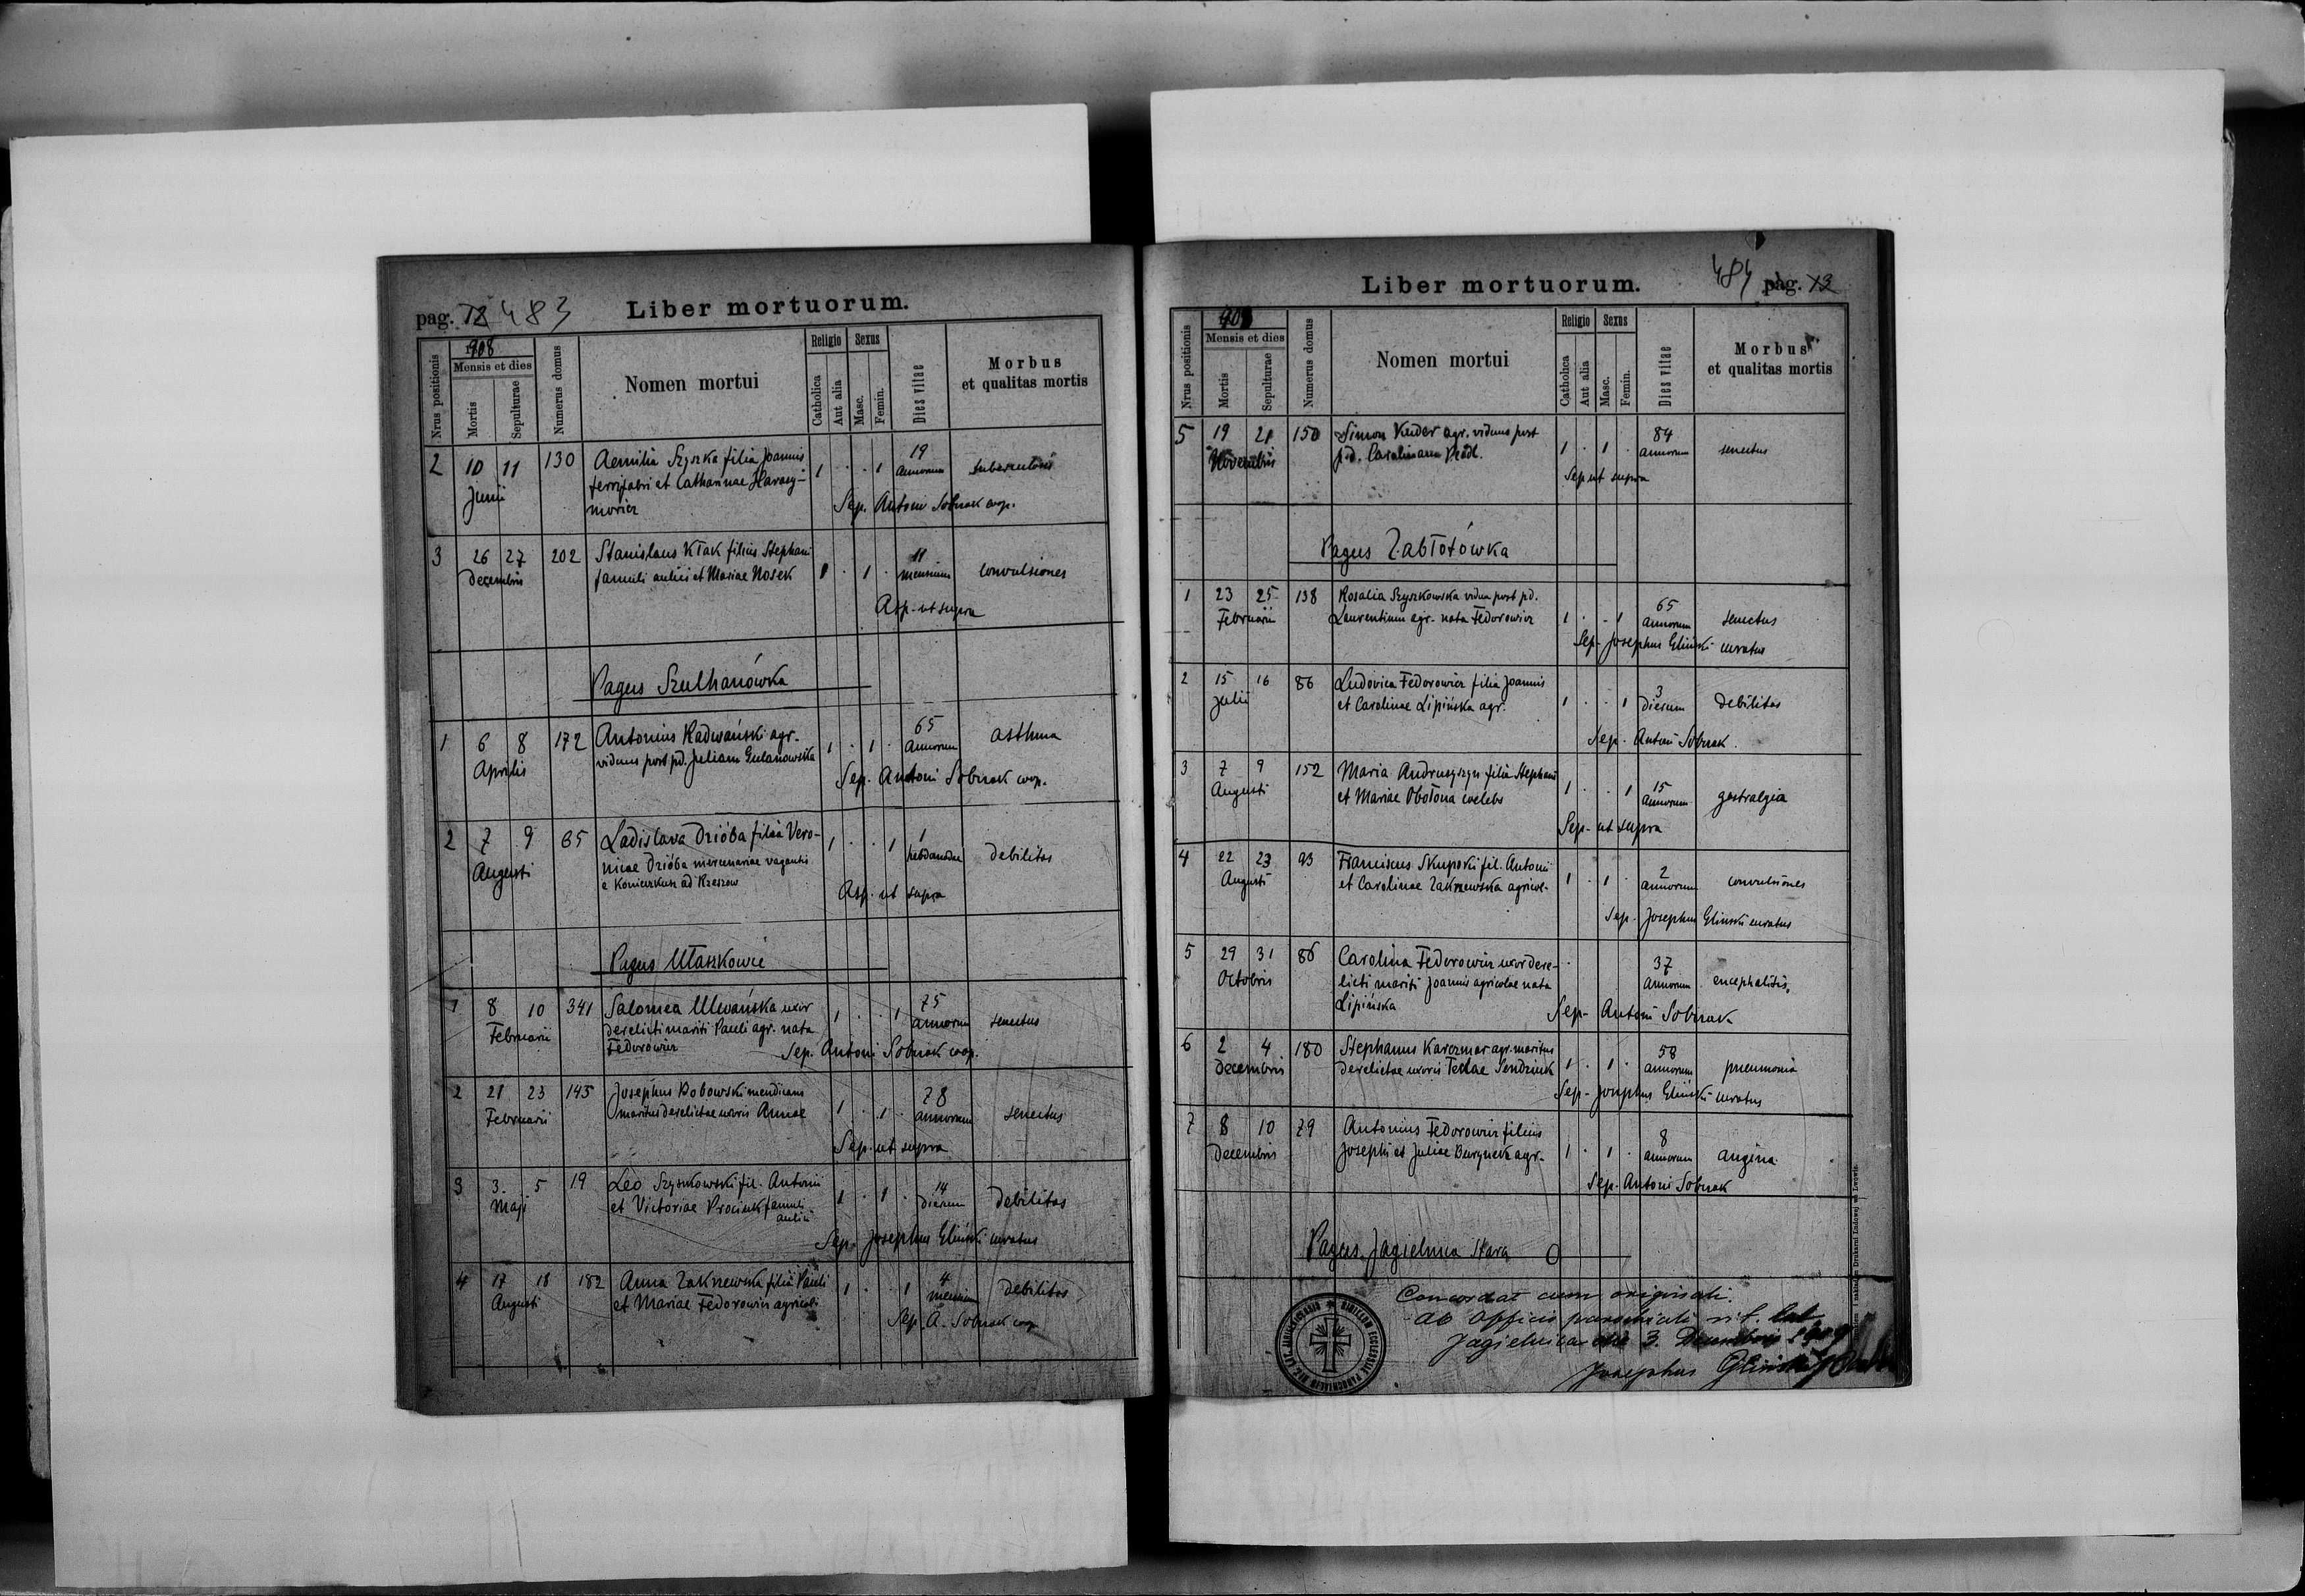 pag. 12 483
Liber mortuorum.
Nrus positionis
1908
Mensis et dies
Mortis
Sepulturae
Numerus domus
Nomen mortui
Religio
Catholica
Aut alia
Sexus
Masc.
Femin.
Dies vitae
Morbus
et qualitas mortis
2 10 11 130 Aemilia Szyszka filia Joannis 1 . . 1 19
Junii ferrifabri et Catharinae annorum
moricz Sep. Antoni Sobczak coop.
3 26 27 202 Stanislaus Kłak filius Stephani 1 . 1 . 11
Decembris famuli aulici et Mariae Nosek mensium convulsiones
Asp. ut supra
Pagus Szulhanówka
1 6 8 172 Antonius Radwański agr. 1 . 1 . 65 asthma
Aprilis viduus post pd. Juliam Gulanowska annorum
Sep. Antoni Sobczak coop.
2 7 9 65 Ladislava Dzióba filia Vero- 1 . . 1 1
Augusti nicae Dzióba mercenariae vagantis hebdomadae debilitas
e ad Rzeszow Asp. ut supra
Pagus Ułaszkowce
1 8 10 341 Salomea Ulwańska uxor 1 . . 1 75
Februarii derelicti mariti Pauli agr. nata annorum senectus
Fedorowicz Sep. Antoni Sobczak coop.
2 21 23 145 Josephus Bobowski mendicans 1 . 1 . 78
Februarii maritus derelictae uxoris Annae annorum senectus
Sep. ut supra
3 3. 5 19 Leo Szyszkowski fil. Antonii 1 . 1 . 14
Maji et Victoriae Prociuk famuli dierum debilitas
aulici
Sep. Josephus Gliński curatus
4 17 18 182 Anna Zakrzewska filia Pauli 1 . . 1 4 debilitas
Augusti et Mariae Fedorowicz agricoli mensium
Sep. A. Sobczak coop.
Liber mortuorum.
484 pag. 13
Nrus positionis
908
Mensis et dies
Mortis
Sepulturae
Numerus domus
Nomen mortui
Religio
Catholica
Aut alia
Sexus
Masc.
Femin.
Dies vitae
Morbus
et qualitas mortis
5 19 21 150 Simon Kuder agr. viduus post 1 . 1 . 84 senectus
Novembris p.d. Carolinam annorum
Sep ut supra
Pagus Zabłotówka
1 23 25 138 Rosalia Szyszkowska vidua post pd. 1 . . 1 65 senectus
Februarii Laurentium agr. nata Fedorowicz annorum
Sep. Josephus Gliński curatus
2 15 16 86 Ludovica Fedorowicz filia Joannis 1 . . 1 3 debilitas
Julii et Carolinae Lipińska agr. dierum
Sep. Antoni Sobczak.
3 7 9 152 Maria Andruszyszyn filia Stephani 1 . . 1 15 gastralgia
Augusti et Mariae Obołona coelebs annorum
Sep. ut supra
4 22 23 93 Franciscus Skupski fil. Antonii 1 . 1 . 2 convulsiones
Augusti et Carolinae Zakrzewska agricol. annorum
Sep. Josephus Gliński curatus
5 29 31 86 Carolina Fedorowicz uxor dere- 37
Octobris licti mariti Joannis agricolae nata annorum encephalitis
Lipińska Sep. Antoni Sobczak
6 2 4 180 Stephanus Karczmar agr. maritus 1 . 1 . 58 pneumonia
Decembris derelictae uxoris Teklae Sendziuk annorum
Sep. Josephus Gliński curatus
7 8 10 79 Antonius Fedorowicz filius 1 . 1 . 8 angina
Decembris Josephi et Juliae agr. annorum
Sep. Antoni Sobczak
Pagus Jagielnica Stara 0
Concordat cum originali.
Ab Officio parochiali rit. lat.
Jagielnica die 3. 1909
Josephus Gliński